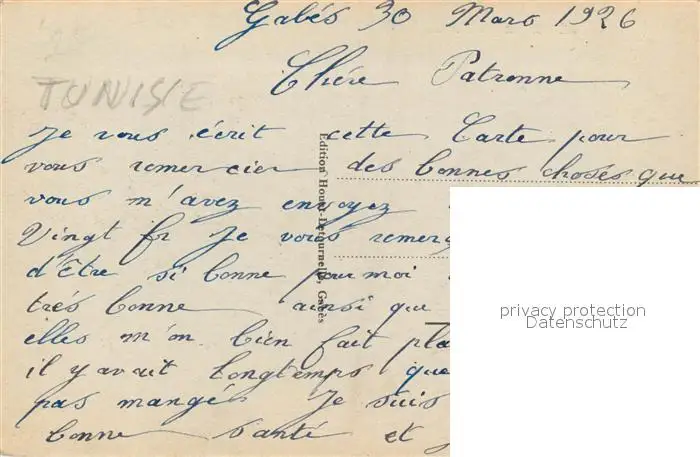 Gabés 30 Mars 1926
Chére Patronne
TUNISIE
Je vous écrit cette Carte pour
vous remercier des bonnes choses que
vous m'avez envoyez
Vingt fr Je vous remer
d'Être si bonne pour moi
trés bonne ainsi que
elles m'on bien fait pla
il y avait longtemps que
pas mangé Je suis
bonne santé et
Edition Houel-Decournelle, Gabès
privacy protection
Datenschutz